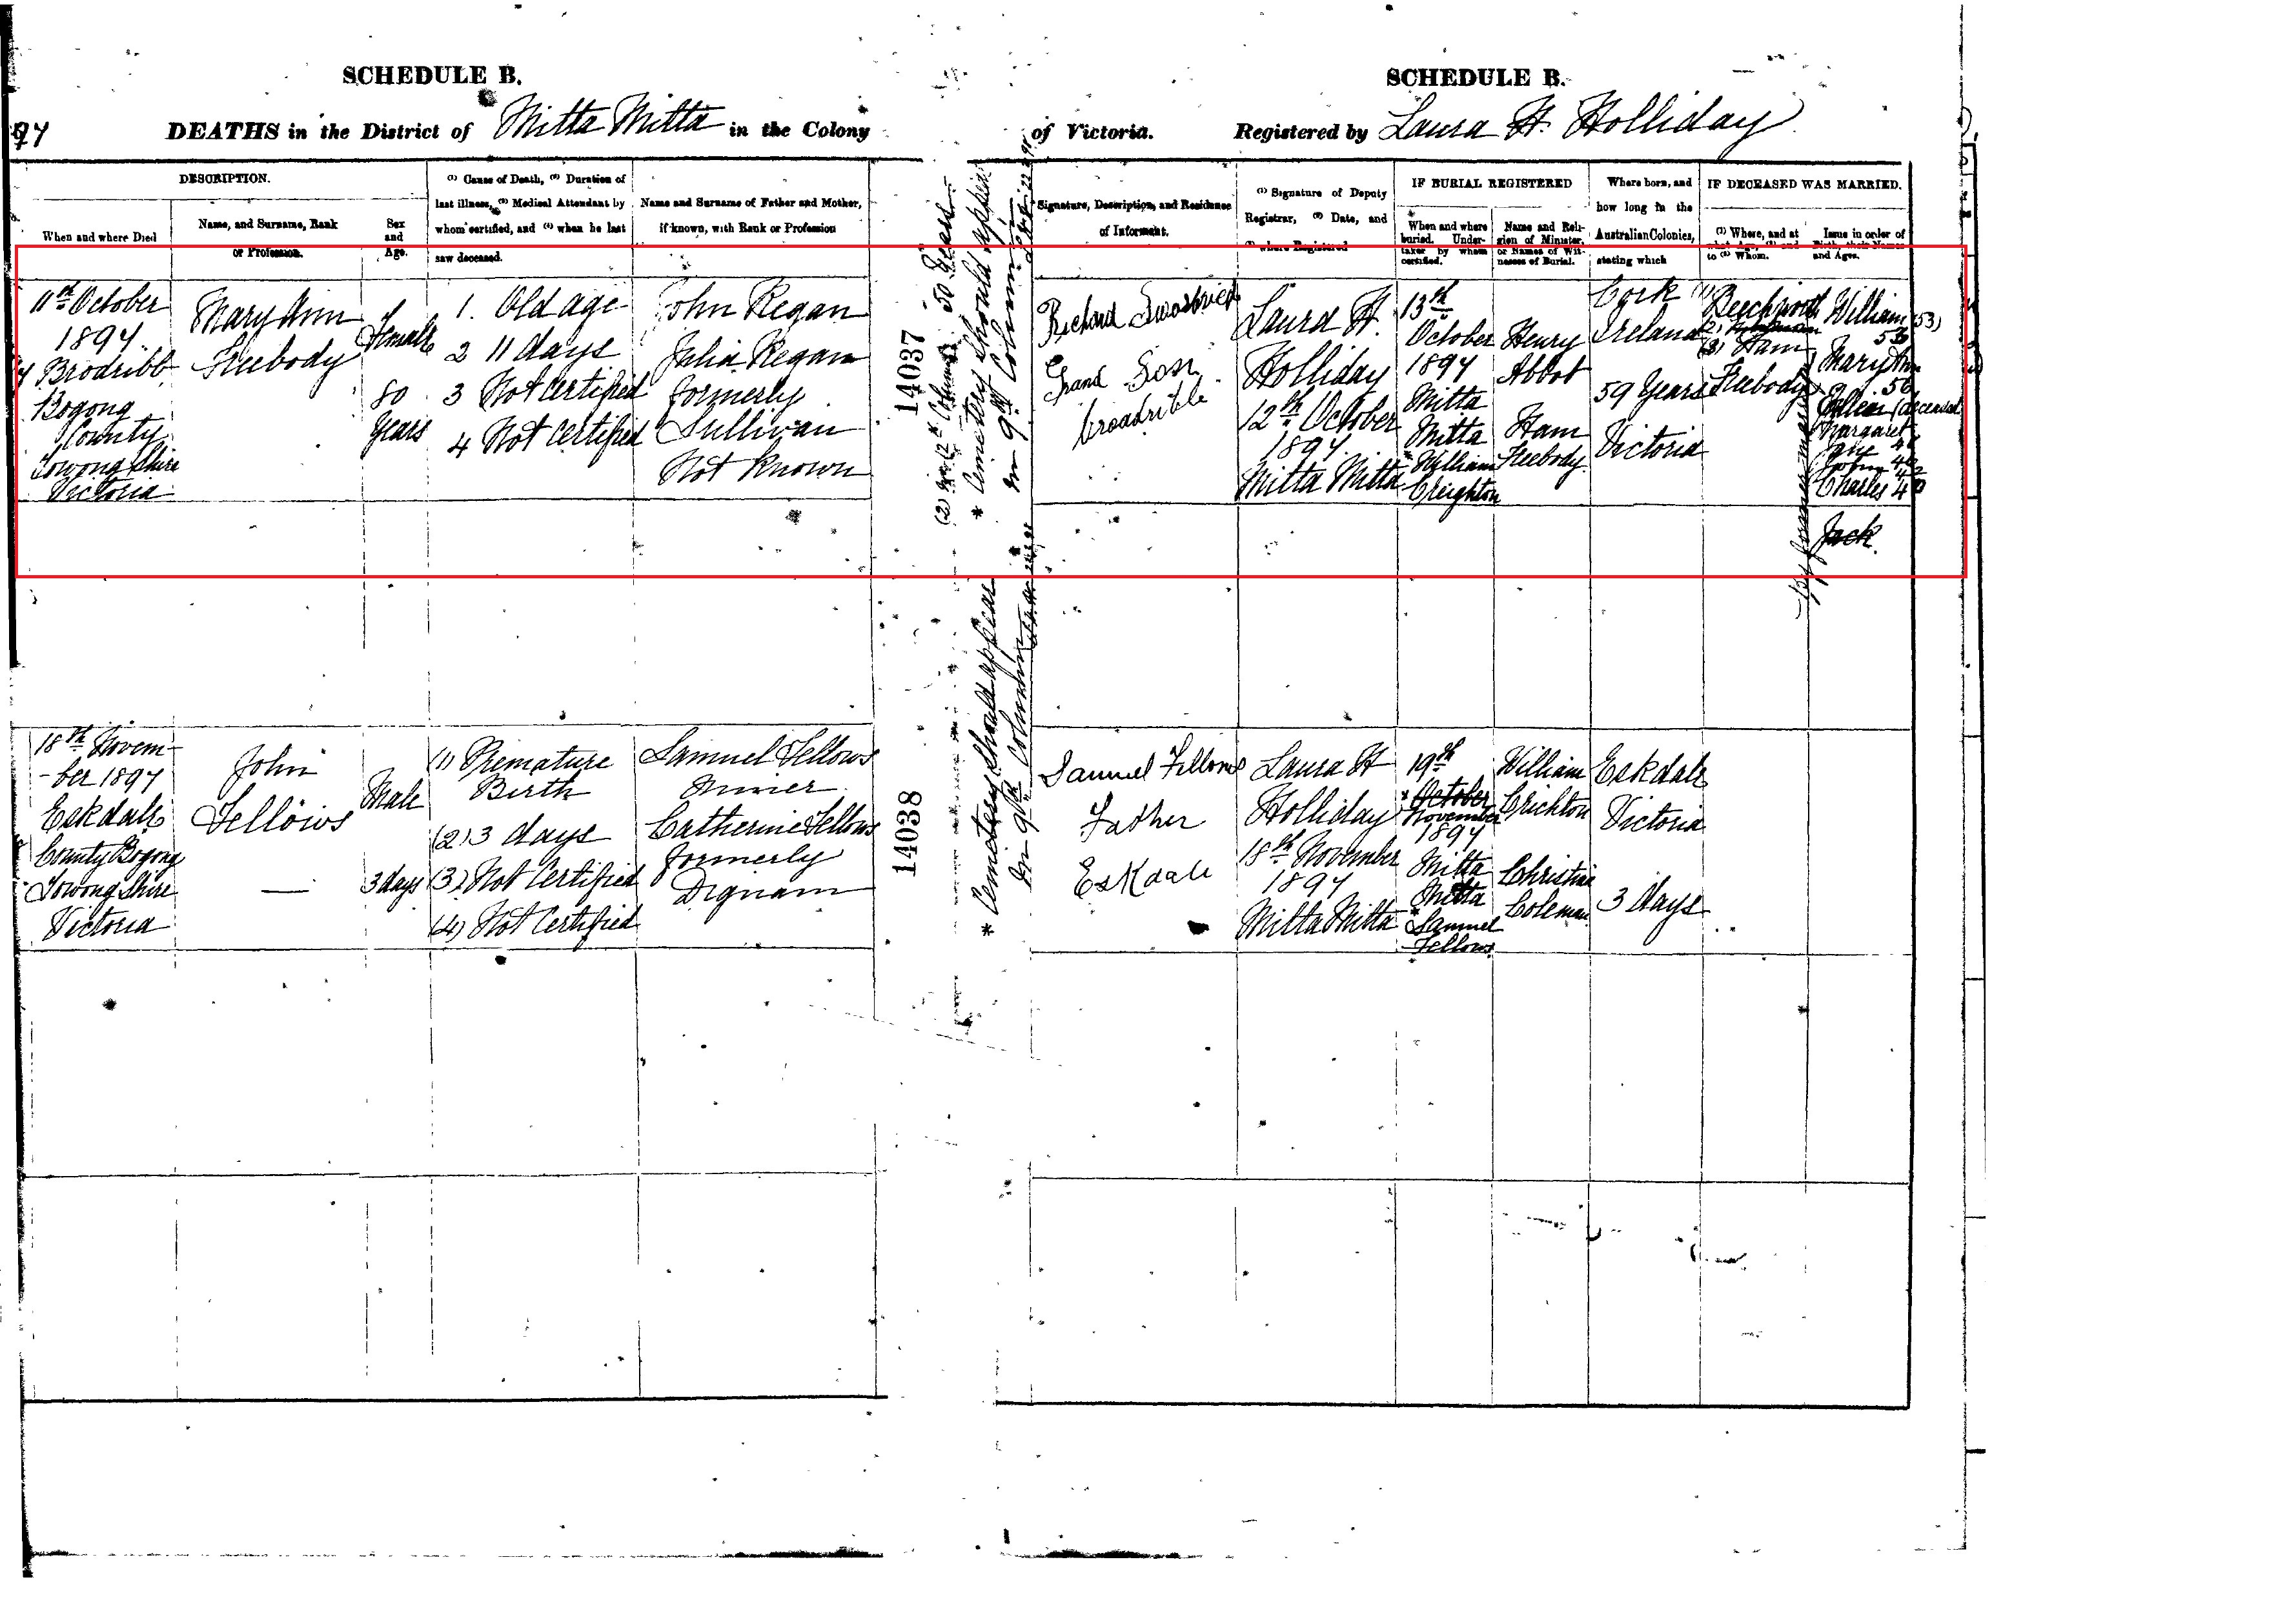 SCHEDULE B.
94
DEATHS in the District of Mitta Mitta in the Colony
DESCRIPTION.
When and where Died
Name, and Surname, Rank
or Profession.
Sex
and
Age.
(1) Cause of Death, (2) Duration of
last illness, (3) Medical Attendant by
whom certified, and (4) when he last
saw deceased.
Name and Surname of Father and Mother,
if known, with Rank or Profession
11th October
1894
Brodribb
Bogong
County
Towong Shire
Victoria
Mary Ann
Freebody
Female
80
Years
1. Old age
2 11 days
3 Not Certified
4 Not Certified
John Regan
Julia Regan
formerly
Sullivan
Not Known
14037
(2) in 12th Column 50 Years
* Cemetery should appear
in 9th Column
18th Novem-
-ber 1894
Eskdale
County Bogong
Towong Shire
Victoria
John
Fellows
—
Male
3 days
(1) Premature
Birth
(2) 3 days
(3) Not Certified
(4) Not Certified
Samuel Fellows
Miner
Catherine Fellows
formerly
Dignam
14038
* Cemetery should appear
in 9th Column
SCHEDULE B.
of Victoria. Registered by Laura H. Holliday
Signature, Description, and Residence
of Informant.
(1) Signature of Deputy
Registrar, (2) Date, and
(3) where Registered
IF BURIAL REGISTERED
When and where
buried. Under-
taker by whom
certified.
Name and Reli-
gion of Minister,
or Names of Wit-
nesses of Burial.
Where born, and
how long in the
Australian Colonies,
stating which
IF DECEASED WAS MARRIED.
(1) Where, and at
what Age, (2) and
to (3) Whom.
Issue in order of
Birth, their Names
and Ages.
Richard
Grand Son
broadribb
Laura H.
Holliday
12th October
1894
Mitta Mitta
13th
October
1894
Mitta
Mitta
* William
Creighton
Henry
Abbot
Ham
Freebody
Cork
Ireland
59 Years
Victoria
(1) Beechworth
(2)
(3) Ham
Freebody
William (53)
53
Mary Ann
50
(deceased
Margaret
John
Charles 40
Jack
by former marriage
Samuel Fellows
Father
Eskdale
Laura H
Holliday
18th November
1894
Mitta Mitta
19th
* October
November
1894
Mitta
Mitta
Samuel
Fellows
William
Crichton
Christina
Coleman
Eskdale
Victoria
3 days